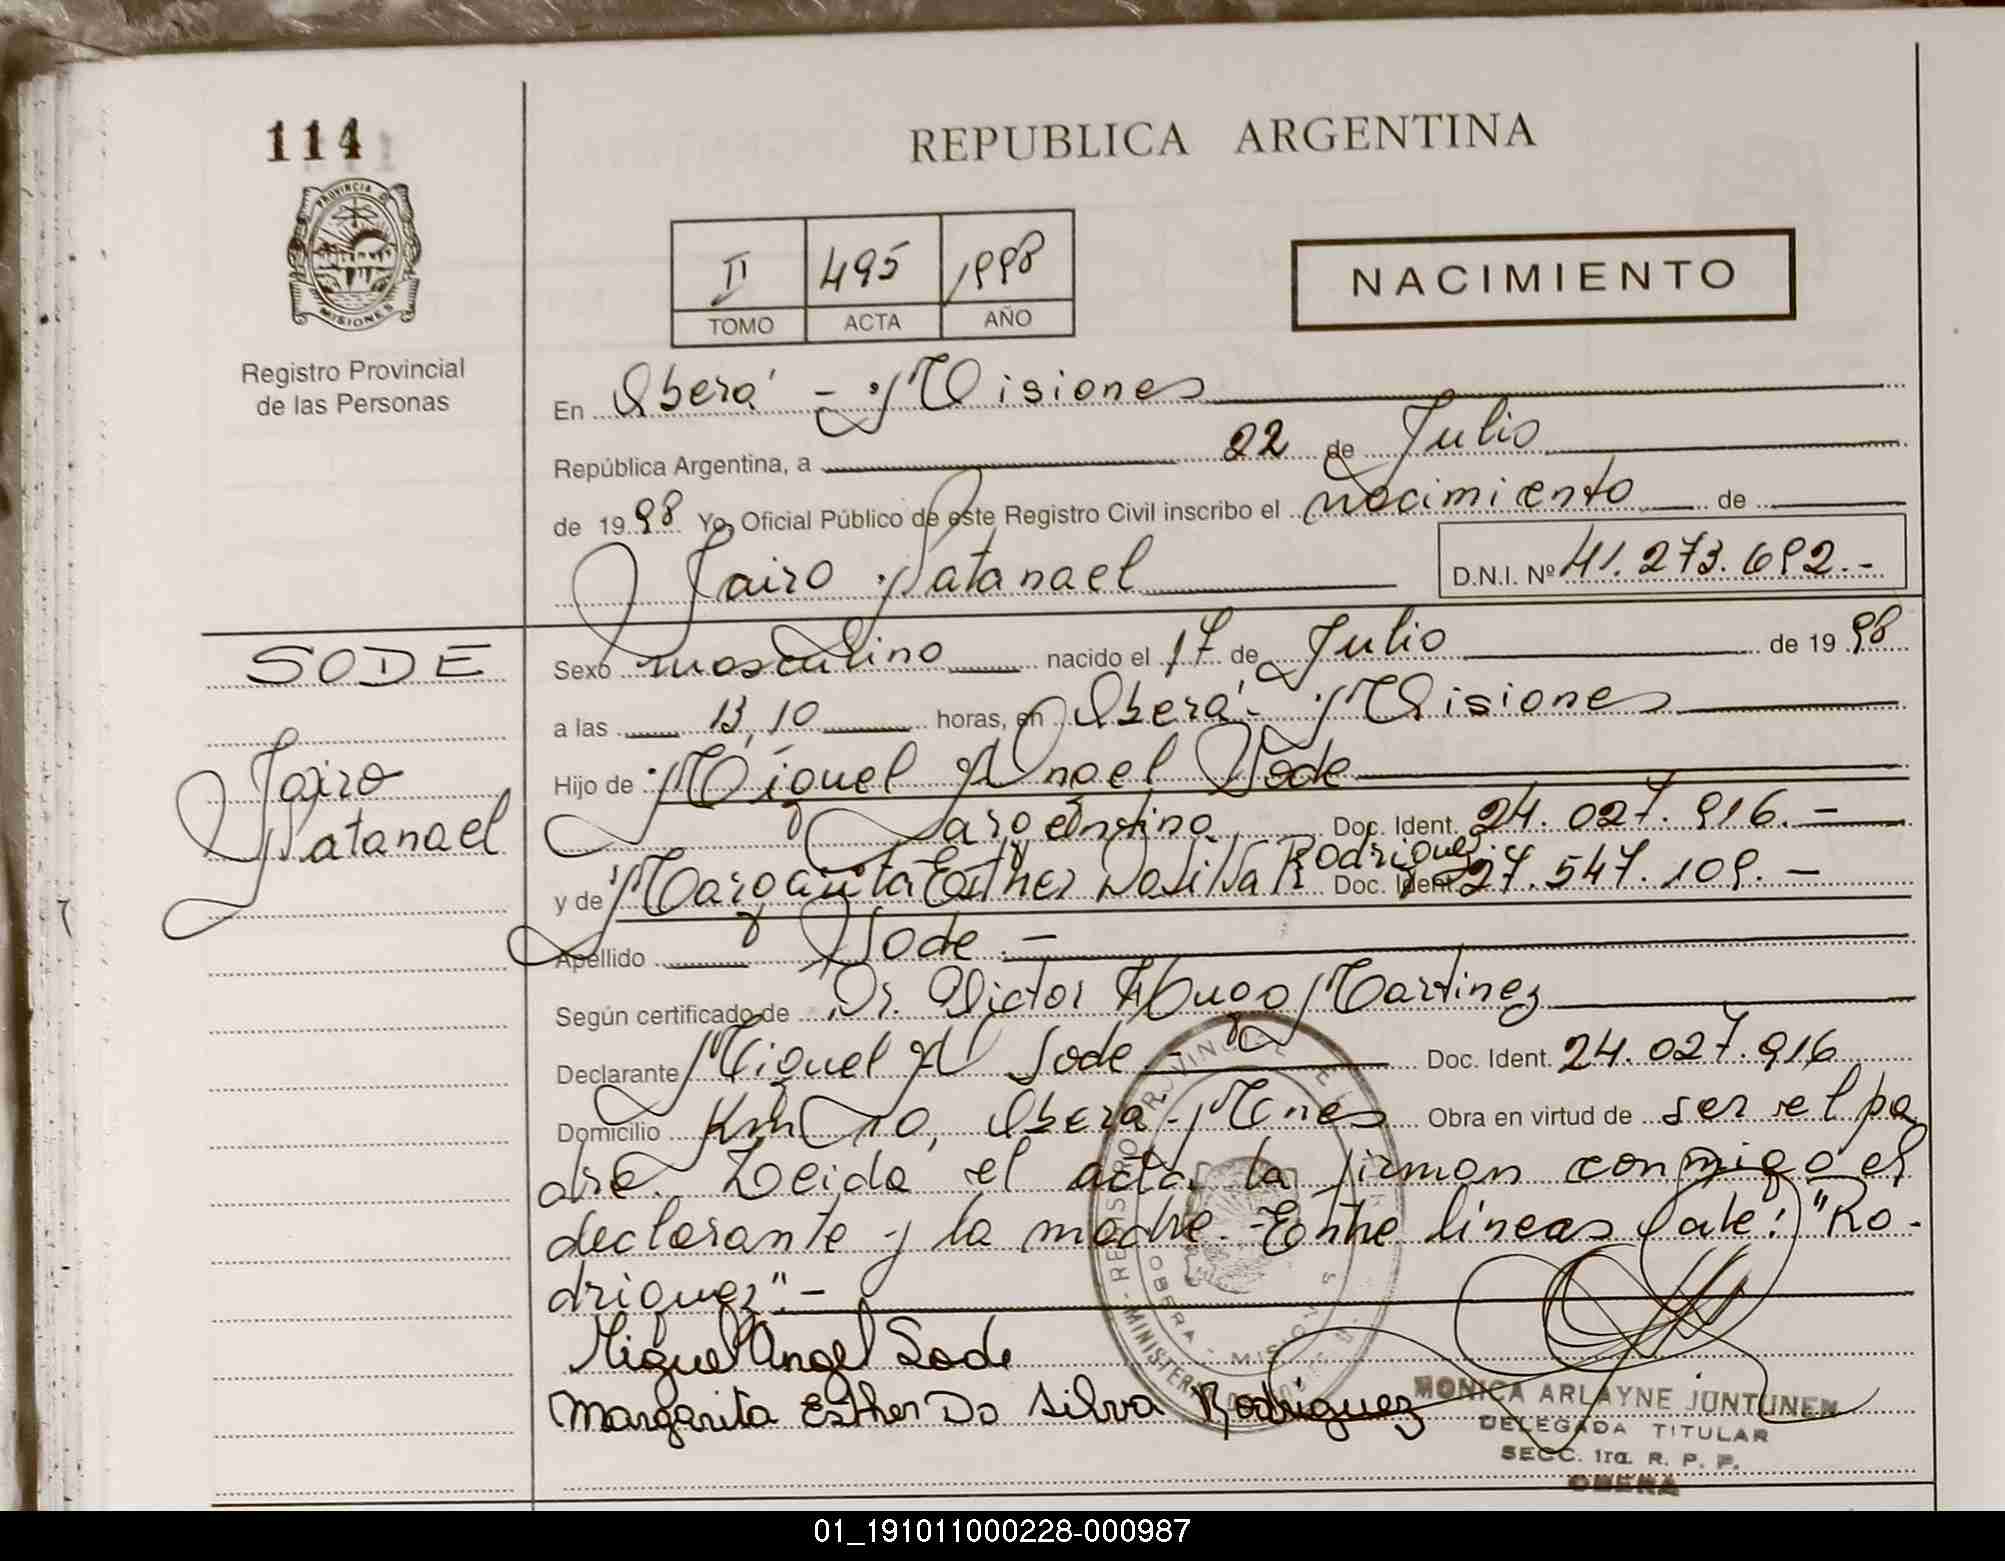 114
REPUBLICA ARGENTINA
PROVINCIA D MISIONES
II 495 1998
TOMO ACTA AÑO
NACIMIENTO
Registro Provincial
de las Personas
En Oberá - Misiones
República Argentina, a 22 de Julio
de 1998 Yo, Oficial Público de este Registro Civil inscribo el nacimiento de
Jairo Natanael D.N.I. Nº 41.273.692.-
SODE
Jairo
Natanael
Sexo masculino nacido el 17 de Julio de 1998
a las 13,10 horas, en Oberá - Misiones
Hijo de Miguel Angel Sode
argentino Doc. Ident. 24.027.916.-
Rodriguez
y de Margarita Esther Do Silva Doc. Ident. 27.547.109.-
Apellido Sode.-
Según certificado de Dr. Victor Hugo Martinez
Declarante Miguel A Sode - Doc. Ident. 24.027.916
Domicilio Km 10, Oberá - Mnes Obra en virtud de ser el pa
dre. Leida el acta, la firman conmigo el
declarante y la madre.- Entre lineas vale: "Ro-
driguez".-
Miguel Angel Sode
Margarita Esther Do Silva Rodriguez
MONICA ARLAYNE JUNTUNEN
DELEGADA TITULAR
SECC. 1ra. R. P. P.
OBERA
REGISTRO PROVINCIAL DE L
MINISTERIO
OBERA - MISIONES
01_191011000228-000987